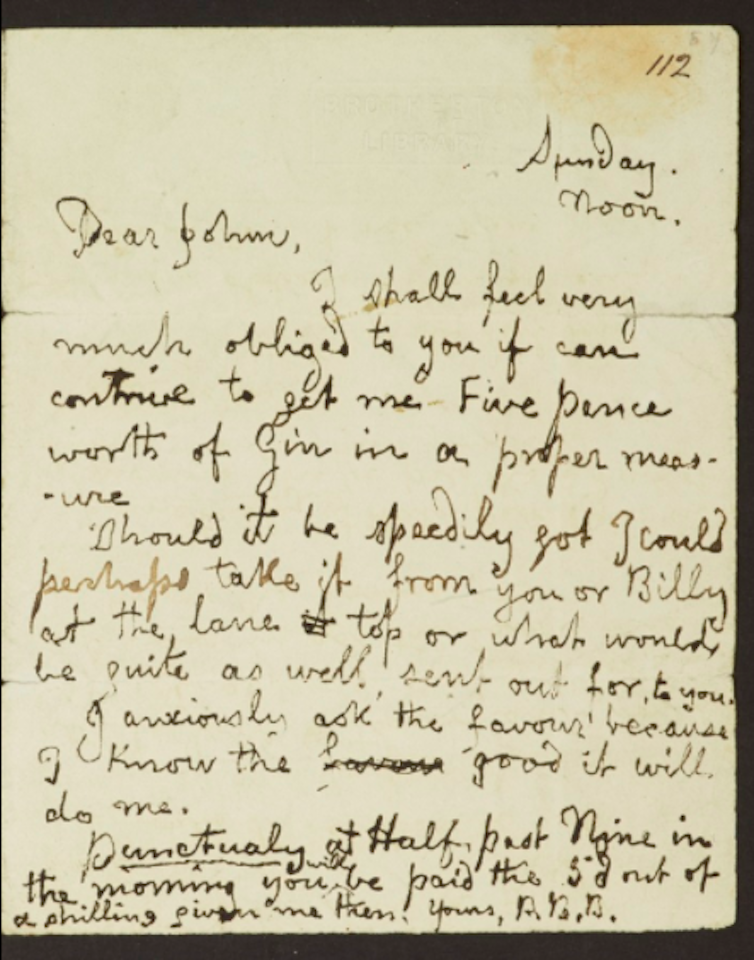 112
Sunday.
Noon.
Dear John,
I shall feel very
much obliged to you if can
contrive to get me Five pence
worth of Gin in a proper meas-
-ure
Should it be speedily got I could
perhaps take it from you or Billy
at the lane top or what would
be quite as well, sent out for, to you.
I anxiously ask the favour because
I know the good it will
do me.
Punctualy at Half past Nine in
the morning you will be paid the 5d out of
a shilling given me then. Yours, P.B.B.